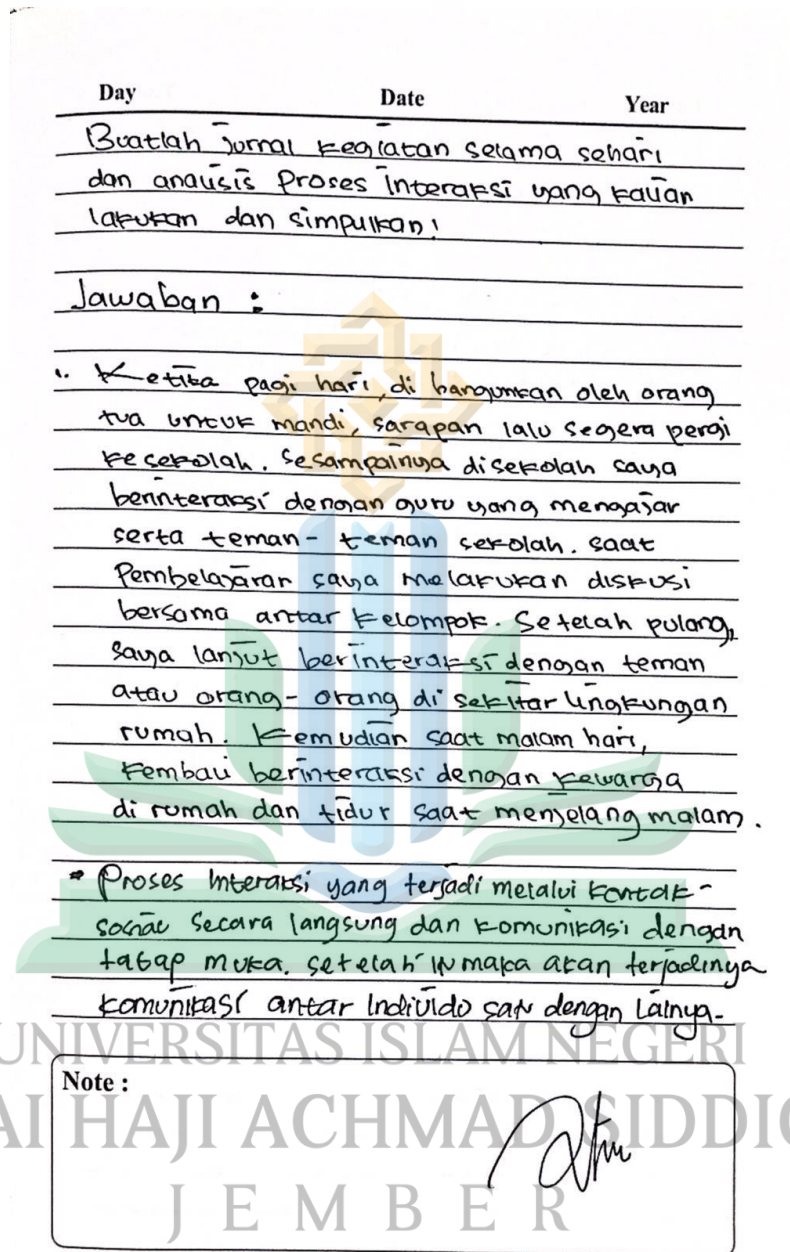 Day Date Year
Buatlah jurnal kegiatan selama sehari
dan analisis Proses interaksi yang kalian
lakukan dan simpulkan!
Jawaban :
1. Ketika pagi hari, di bangunkan oleh orang
tua untuk mandi, sarapan lalu segera pergi
ke sekolah. Sesampainya disekolah saya
berinnteraksi dengan guru yang mengajar
serta teman - teman sekolah. saat
Pembelajaran saya melakukan diskusi
bersama antar kelompok. Setelah pulang,
saya lanjut berinteraksi dengan teman
atau orang - orang di sekitar lingkungan
rumah. Kemudian saat malam hari,
kembali berinteraksi dengan kewarga
di rumah dan tidur saat menjelang malam.
* Proses Interaksi yang terjadi melalui kontak-
sosial secara langsung dan komunikasi dengan
tatap muka. setelah ini maka akan terjadinya
komunikasi antar Individo satu dengan Lainya.
UNIVERSITAS ISLAM NEGERI
Note :
AI HAJI ACHMAD SIDDIQ
JEMBER